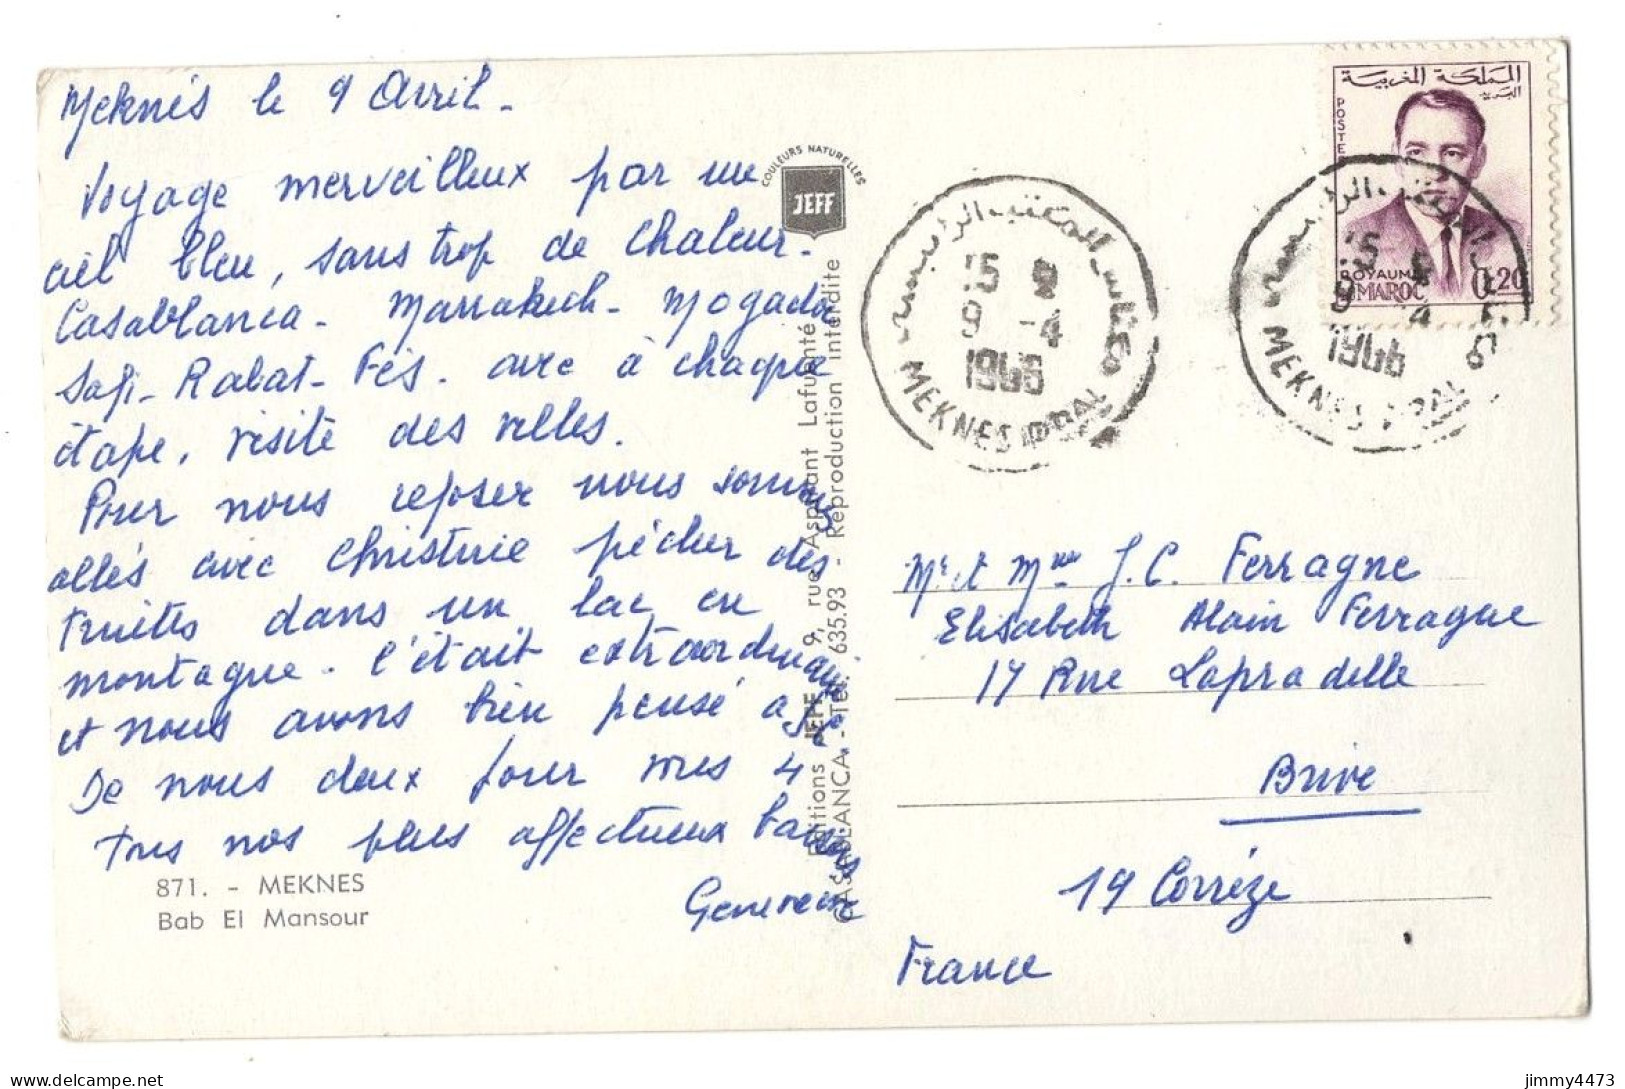 Meknès le 9 Avril -
Voyage merveilleux par un
ciel bleu, sans trop de chaleur -
Casablanca - Marrakech - Mogador
Safi - Rabat - Fès . avec à chaque
étape, visite des villes.
Pour nous reposer nous sommes
allés avec Christine pêcher des
truites dans un lac en
montagne - c'était extraordinaire
et nous avons bien pensé à
De nous deux pour vous 4
tous nos plus affectueux baisers
Geneviève
871. - MEKNES
Bab El Mansour
COULEURS NATURELLES
JEFF
Editions JEFF, 9, rue Aspirant Lafuente
CASABLANCA. - Tél. 635.93 - Reproduction interdite
المكتب الرئيسي
مكناس
15
9 -4
1966
MEKNES PPAL
المملكة المغربية
البريد
POSTES
ROYAUME
DU MAROC
0,20
المكتب الرئيسي
15
9 4
1966
MEKNES PPAL
Mr et Mme J.C. Ferragne
Elisabeth Alain Ferragne
17 Rue Lapradelle
Brive
19 Corrèze
France
jimmy4473